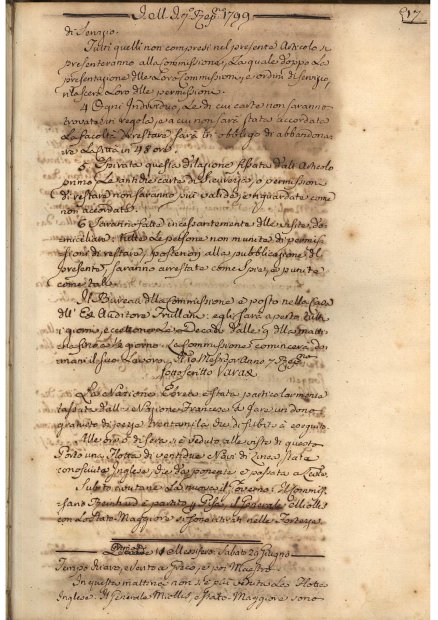 1799
517
di Servizio.
Tutti quelli non compresi nel presente Articolo si
presenteranno alla Commissione, la quale doppo la
presentazione delle loro Commissioni, e ordini di servizio,
rilascerà loro delle permissioni.
4. Ogni Individuo, le di cui carte non saranno
trovate in regola, e a cui non sarà stata accordata
la facoltà di restare sarà in obbligo di abbandona-
re la Città in 48 ore.
5. Spirata questa dilazione fissata dall'Articolo
primo le antiche carte di Sicurezza, o permissioni
di restare non saranno più valide, e riguardate come
non accordate.
6. Saranno fatte incessantemente delle visite do-
miciliari: tutte le persone non munite di permis-
sioni di restare, posteriori alla pubblicazione del
presente, saranno arrestate come e punite
come tali.
Il Bureau della Commissione è posto nella Casa
dell' Ex Auditore Frullani: egli sarà aperto tutti
i giorni, eccettuato le Decadi dalle 9 della matti-
na fino a giorno. La Commissione comincerà do-
mani il suo lavoro. Messidor Anno 7. Repno
sottoscritto Varas
La Nazione Ebrea è stata particolarmente
tassata dalla Nazione Francese a fare un dono
gratuito di pezze trentamila che di subito à eseguito.
Alle ore di sera si è veduto alle viste di questo
Porto una Flotta di ventidue Navi di Linea state
conosciute Inglesi, che da ponente è passata a
Il Commis-
sario Reinhard è partito il Generale Miollis
con lo Stato Maggiore si sono ritirati nelle Fortezze.
11 Messifero Sabato 29 Giugno
Tempo chiaro, e vento a Greco, e poi Maestro
In questa mattina non si è più veduta la Flotta
Inglese. Il Generale Miollis, e Stato Maggiore sono